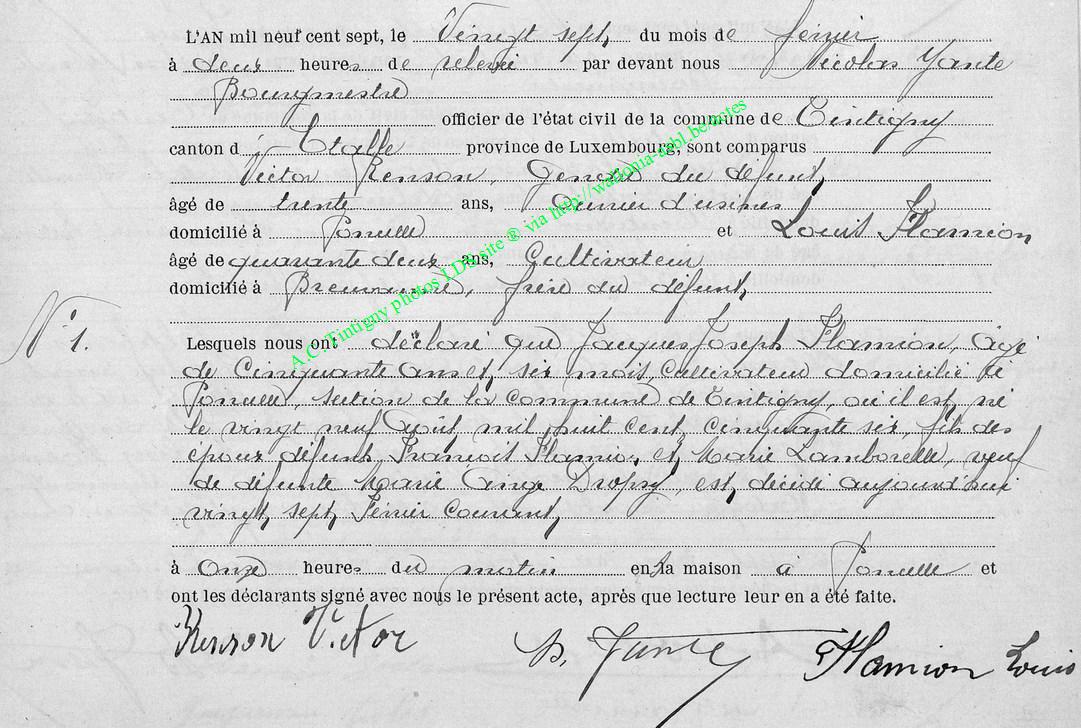 L'AN mil neuf cent sept, le Vingt sept, du mois de fevrier
à deux heures de relevée par devant nous Nicolas Yante
Bourgmestre
officier de l'état civil de la commune de Tintigny
canton d'Etalle province de Luxembourg, sont comparus
Victor Renson, Gendre du défunt,
âgé de trente ans, Ouvrier d'usines
domicilié à Ponselle et Louis Flamion
âgé de quarante deux ans, Cultivateur
domicilié à Breuvanne, frère du défunt,
N° 1.
Lesquels nous ont déclaré que Jacques Joseph Flamion, âgé
de Cinquante ans et six mois Cultivateur domicilié à
Ponselle, section de la Commune de Tintigny, où il est né
le vingt neuf Août mil huit cent cinquante six, fils des
époux défunts François Flamion et Marie Lamborelle, veuf
de défunte Marie Ange Dropsy, est décédé aujourd'hui
vingt sept Février Courant,
à Onze heures du matin en sa maison à Ponselle et
ont les déclarants signé avec nous le présent acte, après que lecture leur en a été faite.
Renson Victor N. Yante Flamion Louis
A.C. Tintigny photos LDS site ® via http://wallonia-asbl.be/actes